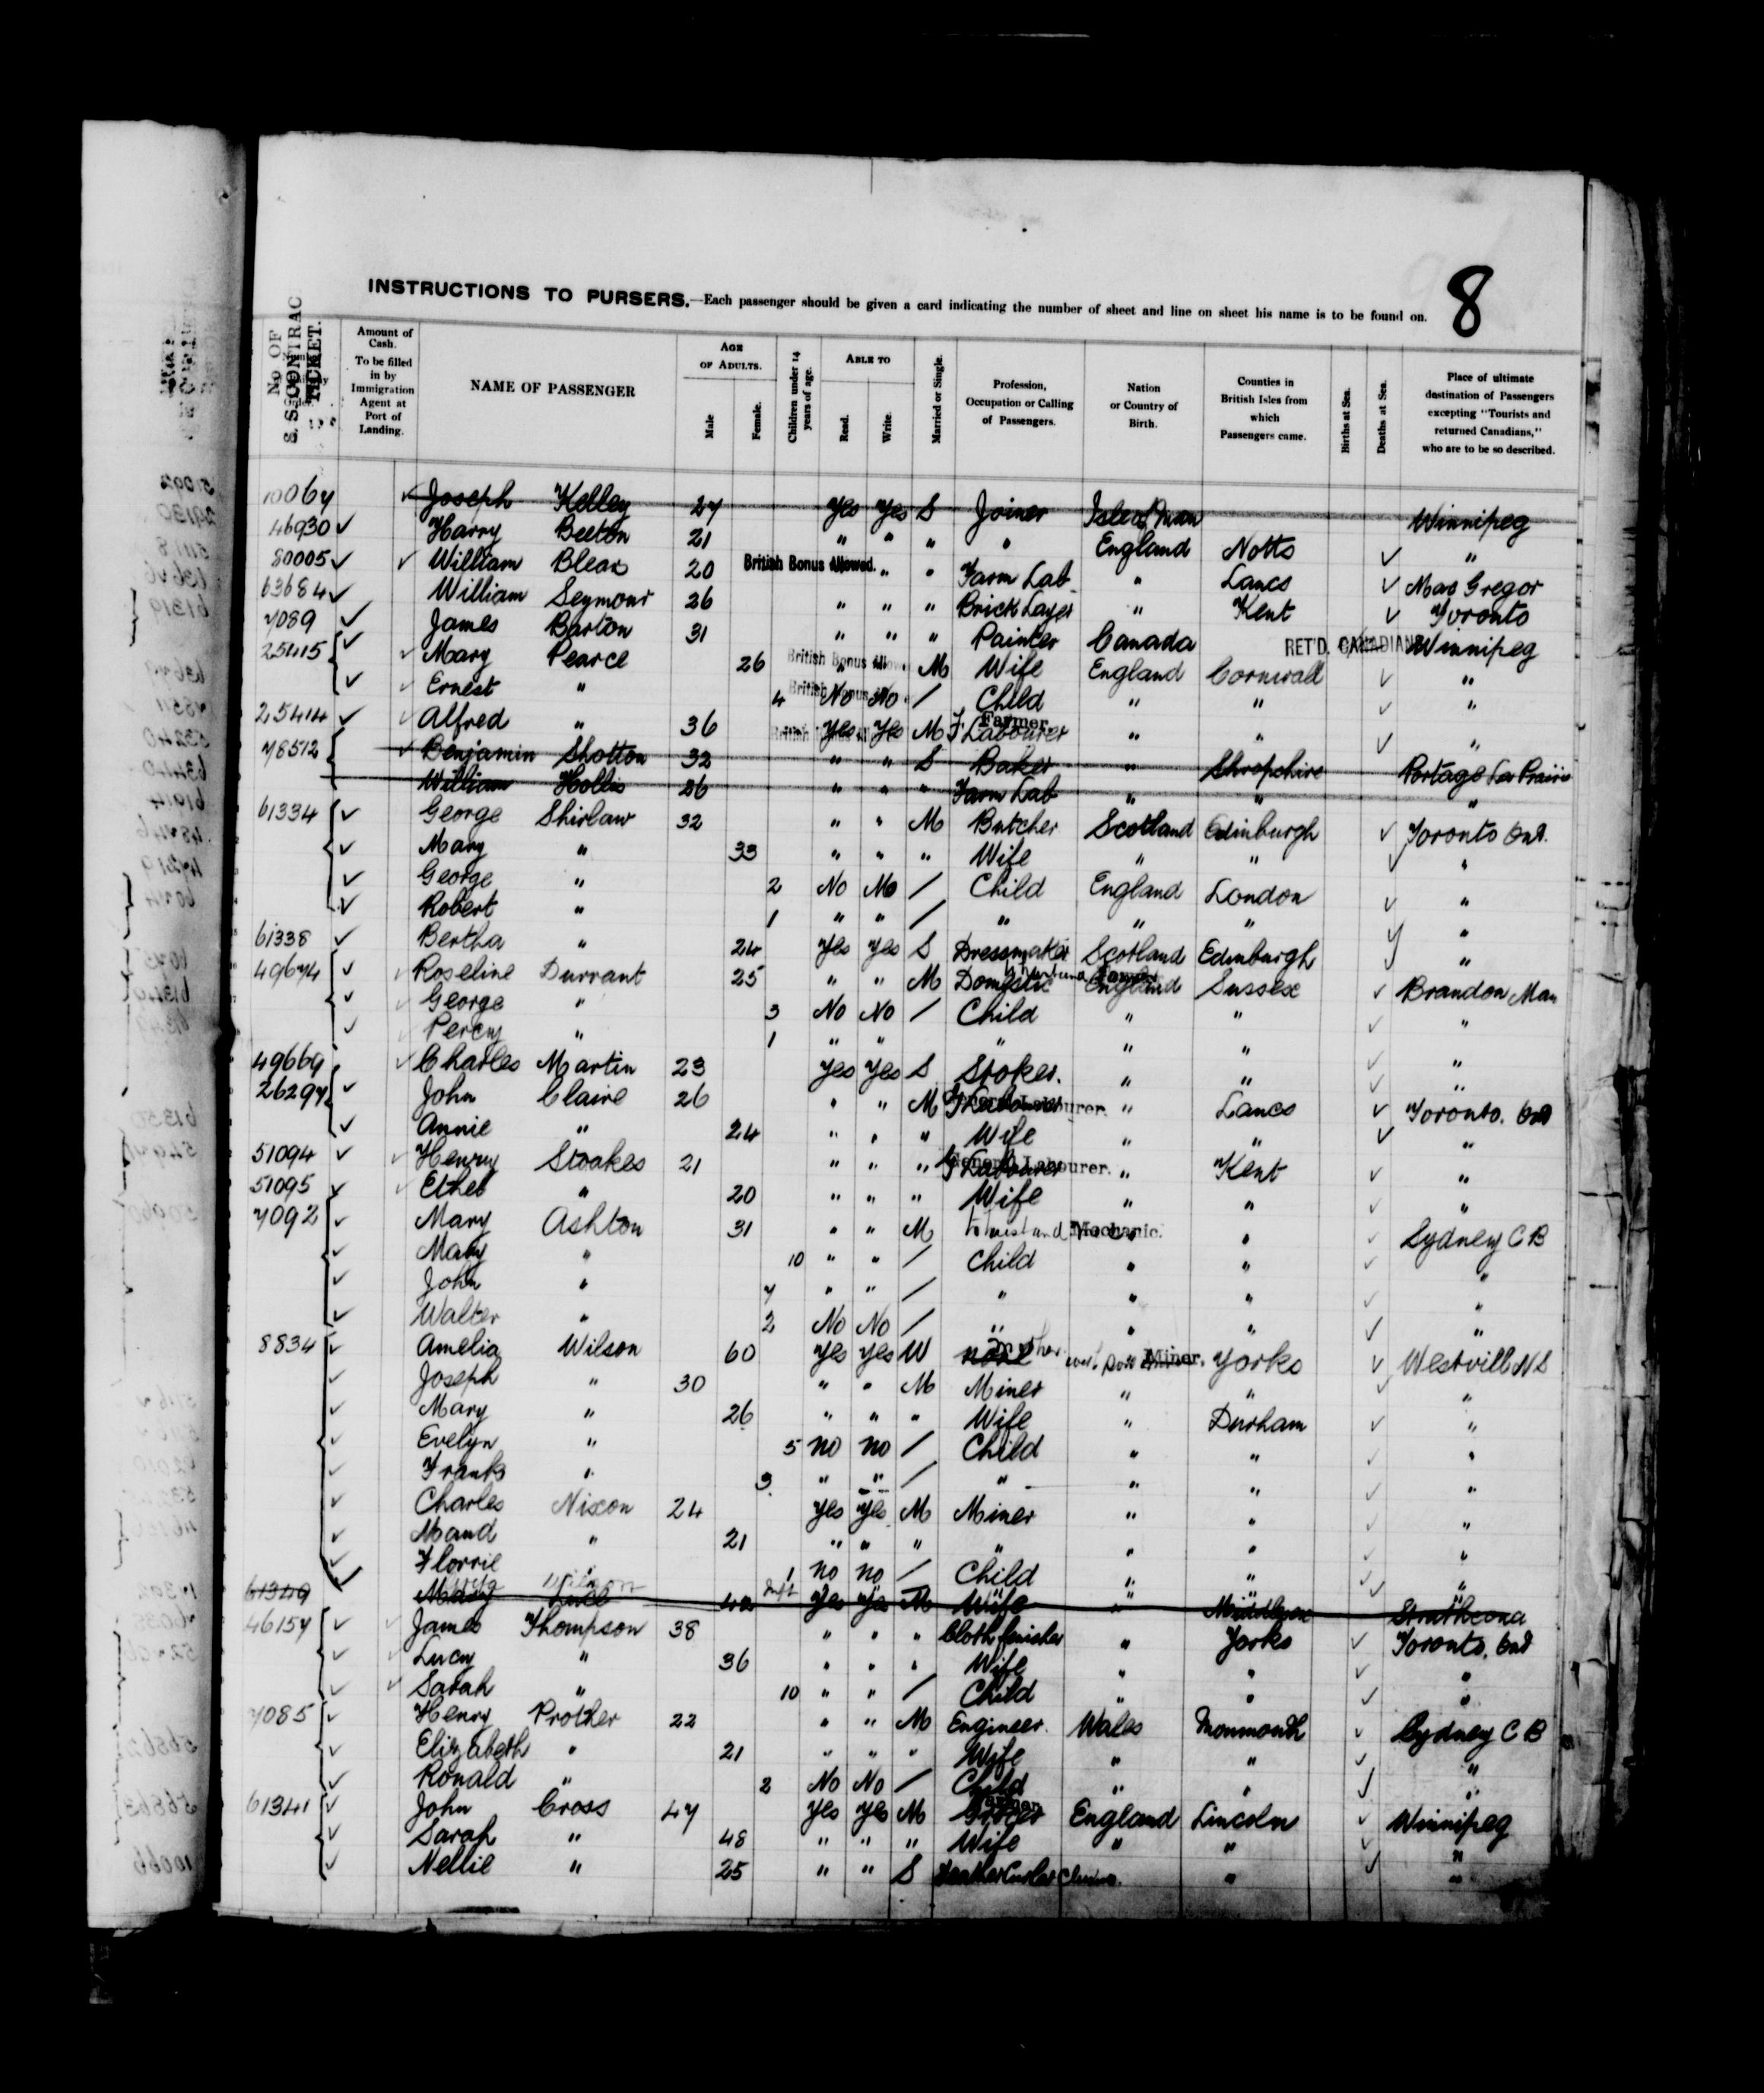 8
INSTRUCTIONS TO PURSERS.—Each passenger should be given a card indicating the number of sheet and line on sheet his name is to be found on.
No OF S. S. CONTRAC TICKET. Amount of Cash. To be filled in by Immigration Agent at Port of Landing. NAME OF PASSENGER AGE OF ADULTS. Male Female. Children under 14 years of age. ABLE TO Read. Write. Married or Single. Profession, Occupation or Calling of Passengers. Nation or Country of Birth. Counties in British Isles from which Passengers came. Births at Sea. Deaths at Sea. Place of ultimate destination of Passengers excepting "Tourists and returned Canadians," who are to be so described.
10064 ✓ Joseph Kelley 27 Yes Yes S Joiner Isle of Man Winnipeg
46930 ✓ Harry Beeton 21 " " " " England Notts ✓ "
80005 ✓ ✓ William Blear 20 British Bonus Allowed. " " Farm Lab " Lancs ✓ Mac Gregor
63684 ✓ William Seymour 26 " " " Brick Layer " Kent ✓ Toronto
7089 ✓ James Barton 31 " " " Painter Canada RET'D. CANADIAN Winnipeg
25415 ✓ ✓ Mary Pearce 26 British Bonus Allow " M Wife England Cornwall ✓ "
✓ ✓ Ernest " 4 British Bonus No No / Child " " ✓ "
25414 ✓ ✓ Alfred " 36 British Yes Yes M F. Labourer Farmer " " ✓ "
78512 ✓ Benjamin Shotton 32 " " S Baker " Shropshire Portage La Prairie
William Hollis 26 " " " Farm Lab " " "
61334 ✓ George Shirlaw 32 " " M Butcher Scotland Edinburgh ✓ Toronto Ont.
✓ Mary " 33 " " " Wife " " ✓ "
✓ George " 2 No No / Child England London ✓ "
✓ Robert " 1 " " / " " " ✓ "
61338 ✓ Bertha " 24 Yes Yes S Dressmaker Scotland Edinburgh ✓ "
49674 ✓ ✓ Roseline Durrant 25 " " M Domestic England Sussex ✓ Brandon Man
✓ ✓ George " 3 No No / Child " " ✓ "
✓ ✓ Percy " 1 " " " " " ✓ "
49669 ✓ Charles Martin 23 Yes Yes S Stoker. " " ✓ "
26297 ✓ John Claire 26 " " M G Labourer Labourer. " Lancs ✓ Toronto. Ont
✓ Annie " 24 " " " Wife " " ✓ "
51094 ✓ ✓ Henry Stoakes 21 " " " G Labourer General Labourer. " Kent ✓ "
51095 ✓ ✓ Ethel " 20 " " " Wife " " ✓ "
7092 ✓ Mary Ashton 31 " " M Mechanic. " ✓ Sydney C B
✓ Mary " 10 " " / Child " " ✓ "
✓ John " 7 " " / " " " ✓ "
✓ Walter " 2 No No / " " " ✓ "
8834 ✓ Amelia Wilson 60 Yes Yes W Miner. Yorks ✓ Westville N S
✓ Joseph " 30 " " M Miner " " ✓ "
✓ Mary " 26 " " " Wife " Durham ✓ "
✓ Evelyn " 5 No No / Child " " ✓ "
✓ Frank " 3 " " / " " " ✓ "
✓ Charles Nixon 24 Yes Yes M Miner " " ✓ "
✓ Maud " 21 " " " " " " ✓ "
✓ Florrie " 1 No No / Child " " ✓ "
61349 ✓ 42 Inft Yes Yes M Wife " Middlesex Strathcona
46157 ✓ ✓ James Thompson 38 " " " Cloth finisher " Yorks ✓ Toronto. Ont
✓ ✓ Lucy " 36 " " " Wife " " ✓ "
✓ ✓ Sarah " 10 " " / Child " " ✓ "
7085 ✓ Henry Prother 22 " " M Engineer. Wales Monmouth ✓ Sydney C B
✓ Elizabeth " 21 " " " Wife " " ✓ "
✓ Ronald " 2 No No / Child " " ✓ "
61341 ✓ John Cross 47 Yes Yes M England Lincoln ✓ Winnipeg
✓ Sarah " 48 " " " Wife " " ✓ "
✓ Nellie " 25 " " S Feather Curler " ✓ "